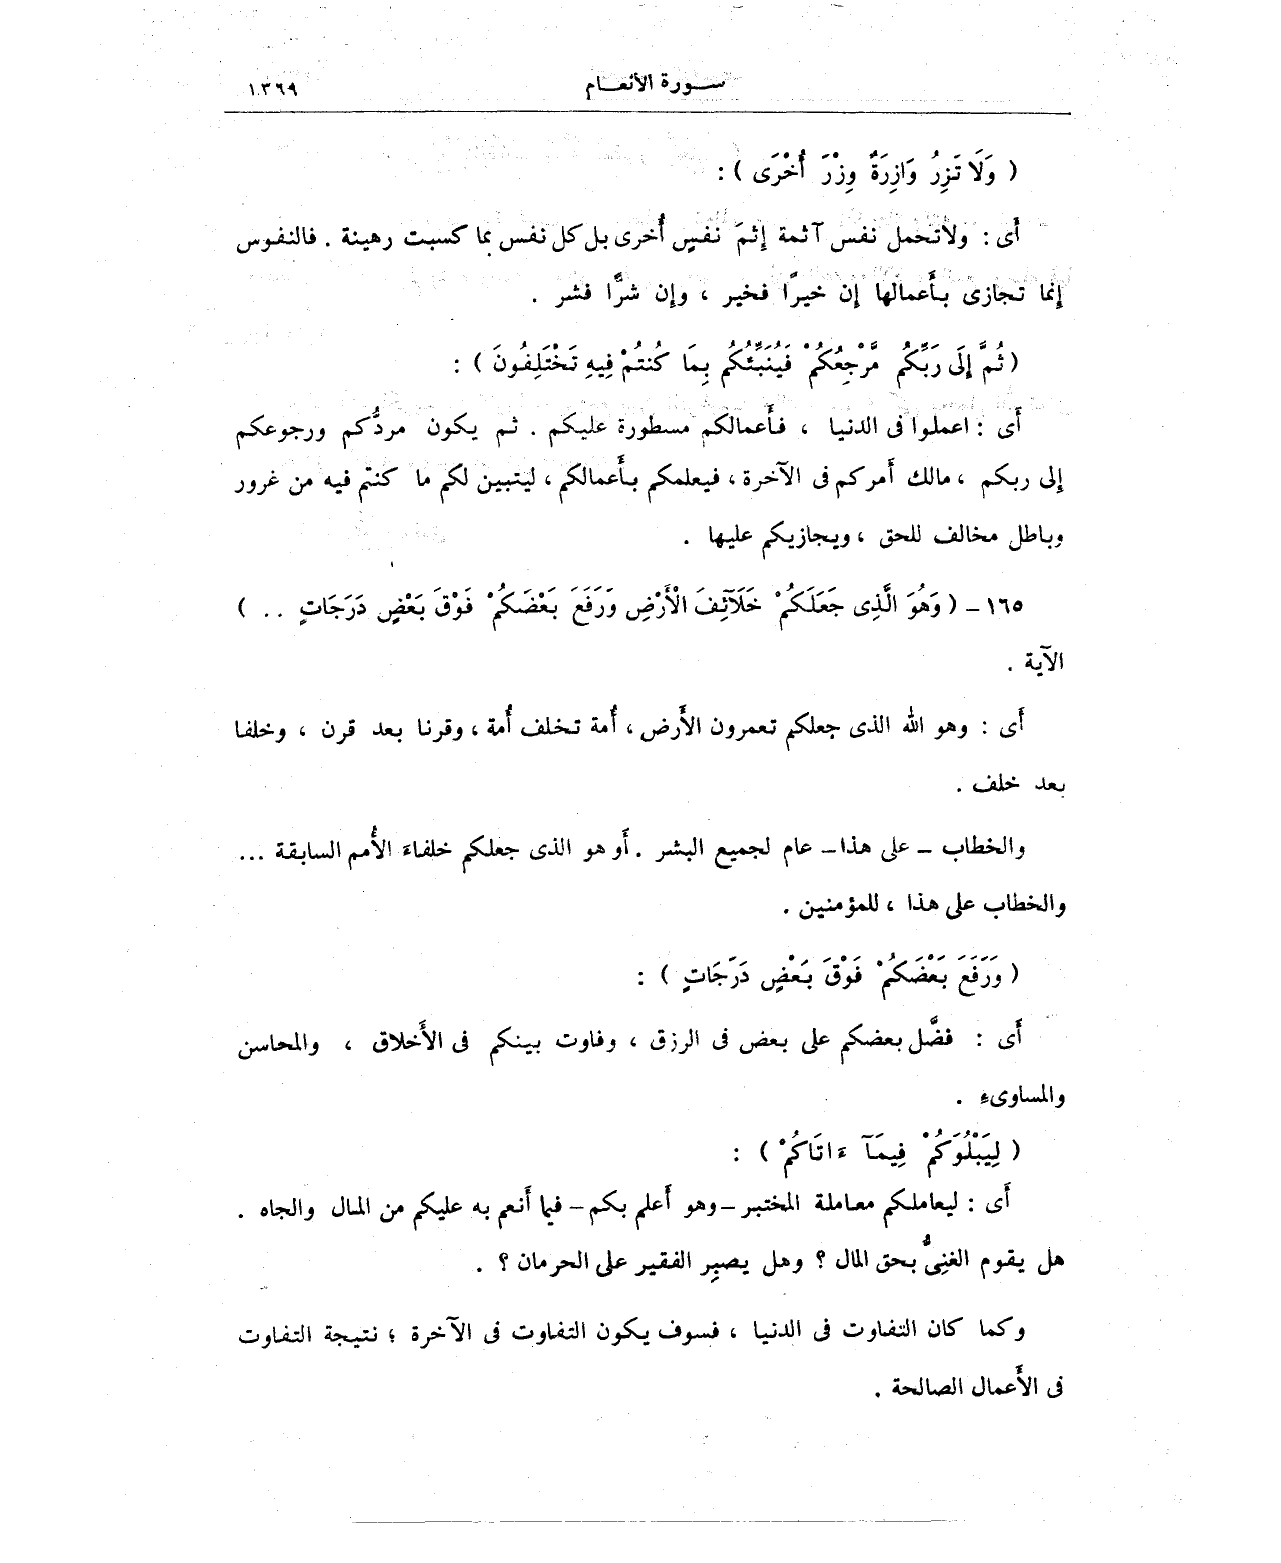 سورة الأنعام ١٣٦٩
( وَلَا تَزِرُ وَازِرَةٌ وِزْرَ أُخْرَى ) :
أى : ولاتحمل نفس آثمة إثمَ نفسٍ أُخرى بل كل نفس بما كسبت رهينة . فالنفوس
إنما تجازى بأَعمالها إن خيرًا فخير ، وإن شرًّا فشر .
( ثُمَّ إِلَى رَبِّكُم مَّرْجِعُكُمْ فَيُنَبِّئُكُم بِمَا كُنتُمْ فِيهِ تَخْتَلِفُونَ ) :
أَى : اعملوا فى الدنيا ، فأَعمالكم مسطورة عليكم . ثم يكون مردُّكم ورجوعكم
إلى ربكم ، مالك أَمركم فى الآخرة ، فيعلمكم بأَعمالكم ، ليتبين لكم ما كنتم فيه من غرور
وباطل مخالف للحق ، ويجازيكم عليها .
١٦٥ - ( وَهُوَ الَّذِى جَعَلَكُمْ خَلَآئِفَ الْأَرْضِ وَرَفَعَ بَعْضَكُمْ فَوْقَ بَعْضٍ دَرَجَاتٍ . . )
الآية .
أَى : وهو الله الذى جعلكم تعمرون الأَرض ، أُمة تخلف أُمة ، وقرنا بعد قرن ، وخلفا
بعد خلف .
والخطاب - على هذا - عام لجميع البشر . أَو هو الذى جعلكم خلفاءَ الأُمم السابقة ...
والخطاب على هذا ، للمؤمنين .
( وَرَفَعَ بَعْضَكُمْ فَوْقَ بَعْضٍ دَرَجَاتٍ ) :
أَى : فضَّل بعضكم على بعض فى الرزق ، وفاوت بينكم فى الأَخلاق ، والمحاسن
والمساوىءِ .
( لِيَبْلُوَكُمْ فِيمَآ ءَاتَاكُمْ ) :
أَى : ليعاملكم معاملة المختبر - وهو أَعلم بكم - فيما أَنعم به عليكم من المال والجاه .
هل يقوم الغنِىُّ بحق المال ؟ وهل يصبِر الفقير على الحرمان ؟ .
وكما كان التفاوت فى الدنيا ، فسوف يكون التفاوت فى الآخرة ؛ نتيجة التفاوت
فى الأَعمال الصالحة .